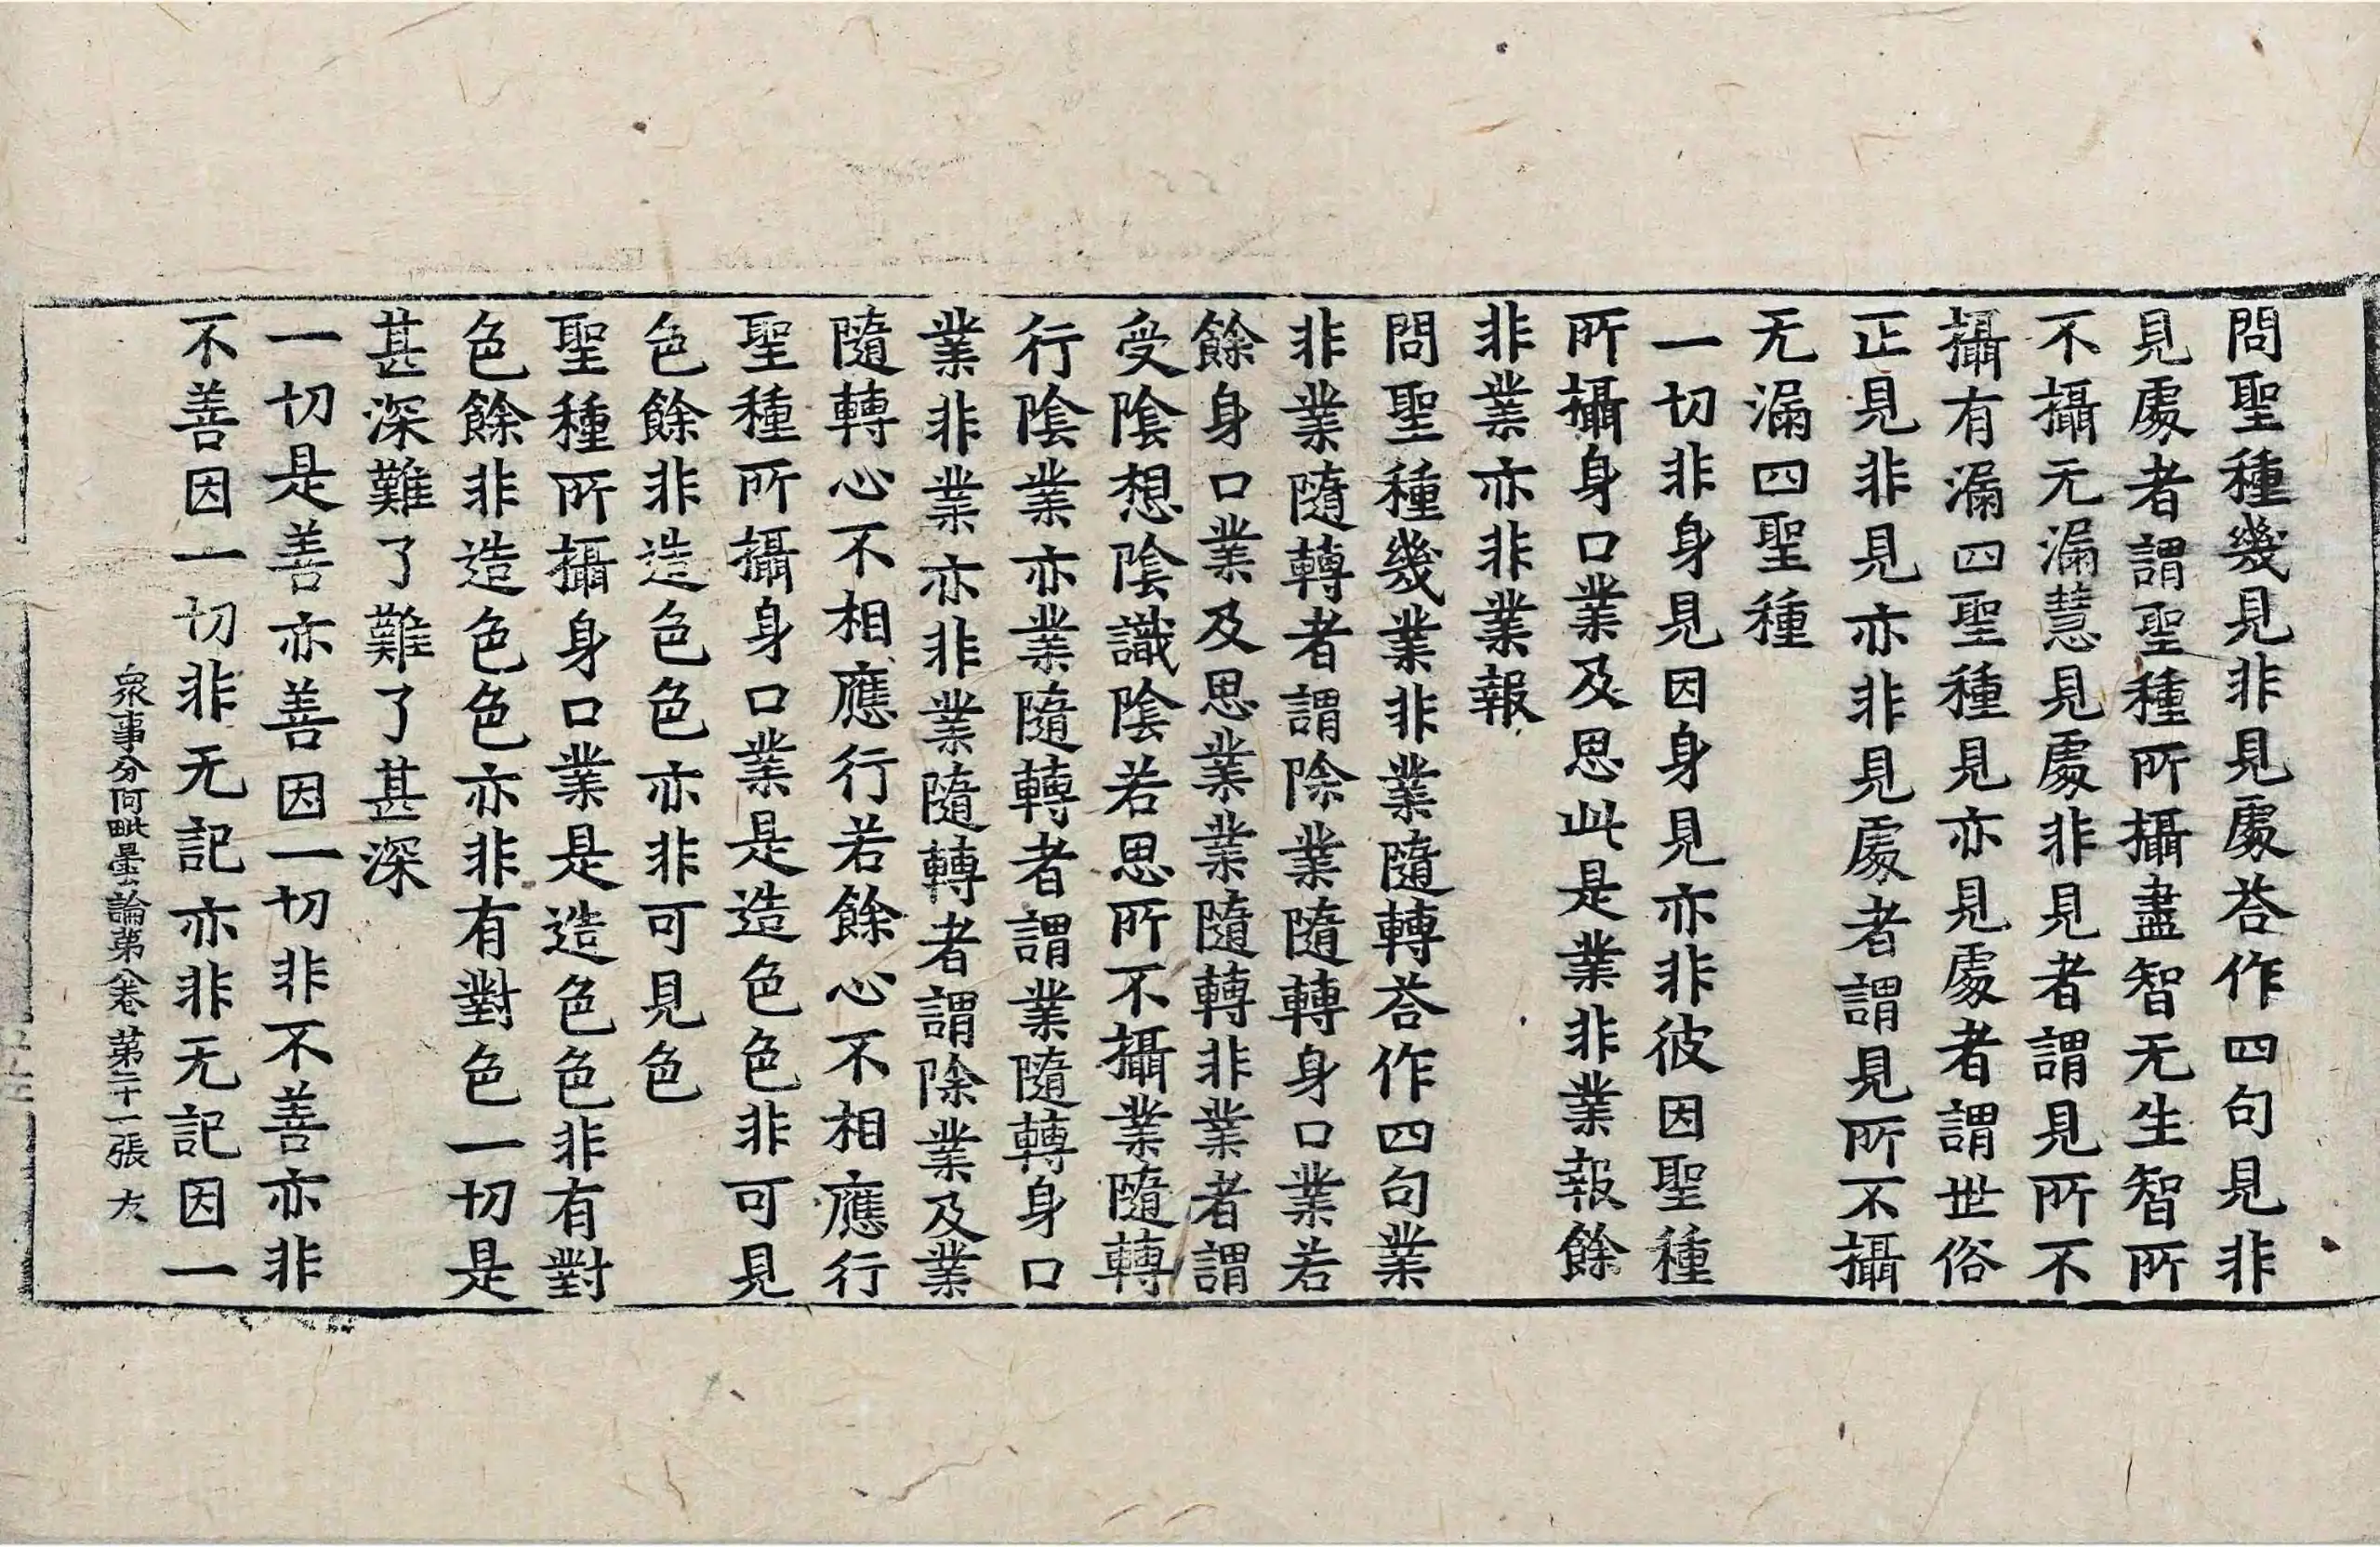 問聖種幾見非見處荅作四句見非
見處者謂聖種所攝盡智无生智所
不攝无漏慧見處非見者謂見所不
攝有漏四聖種見亦見處者謂世俗
正見非見亦非見處者謂見所不攝
无漏四聖種
一切非身見因身見亦非彼因聖種
所攝身口業及思此是業非業報餘
非業亦非業報
問聖種幾業非業隨轉荅作四句業
非業隨轉者謂除業隨轉身口業若
餘身口業及思業業隨轉非業者謂
受陰想陰識陰若思所不攝業隨轉
行陰業亦業隨轉者謂業隨轉身口
業非業亦非業隨轉者謂除業及業
隨轉心不相應行若餘心不相應行
聖種所攝身口業是造色色非可見
色餘非造色色亦非可見色
聖種所攝身口業是造色色非有對
色餘非造色色亦非有對色一切是
甚深難了難了甚深
一切是善亦善因一切非不善亦非
不善因一切非无記亦非无記因一
衆事分阿毗曇論第八卷 第二十一張 友